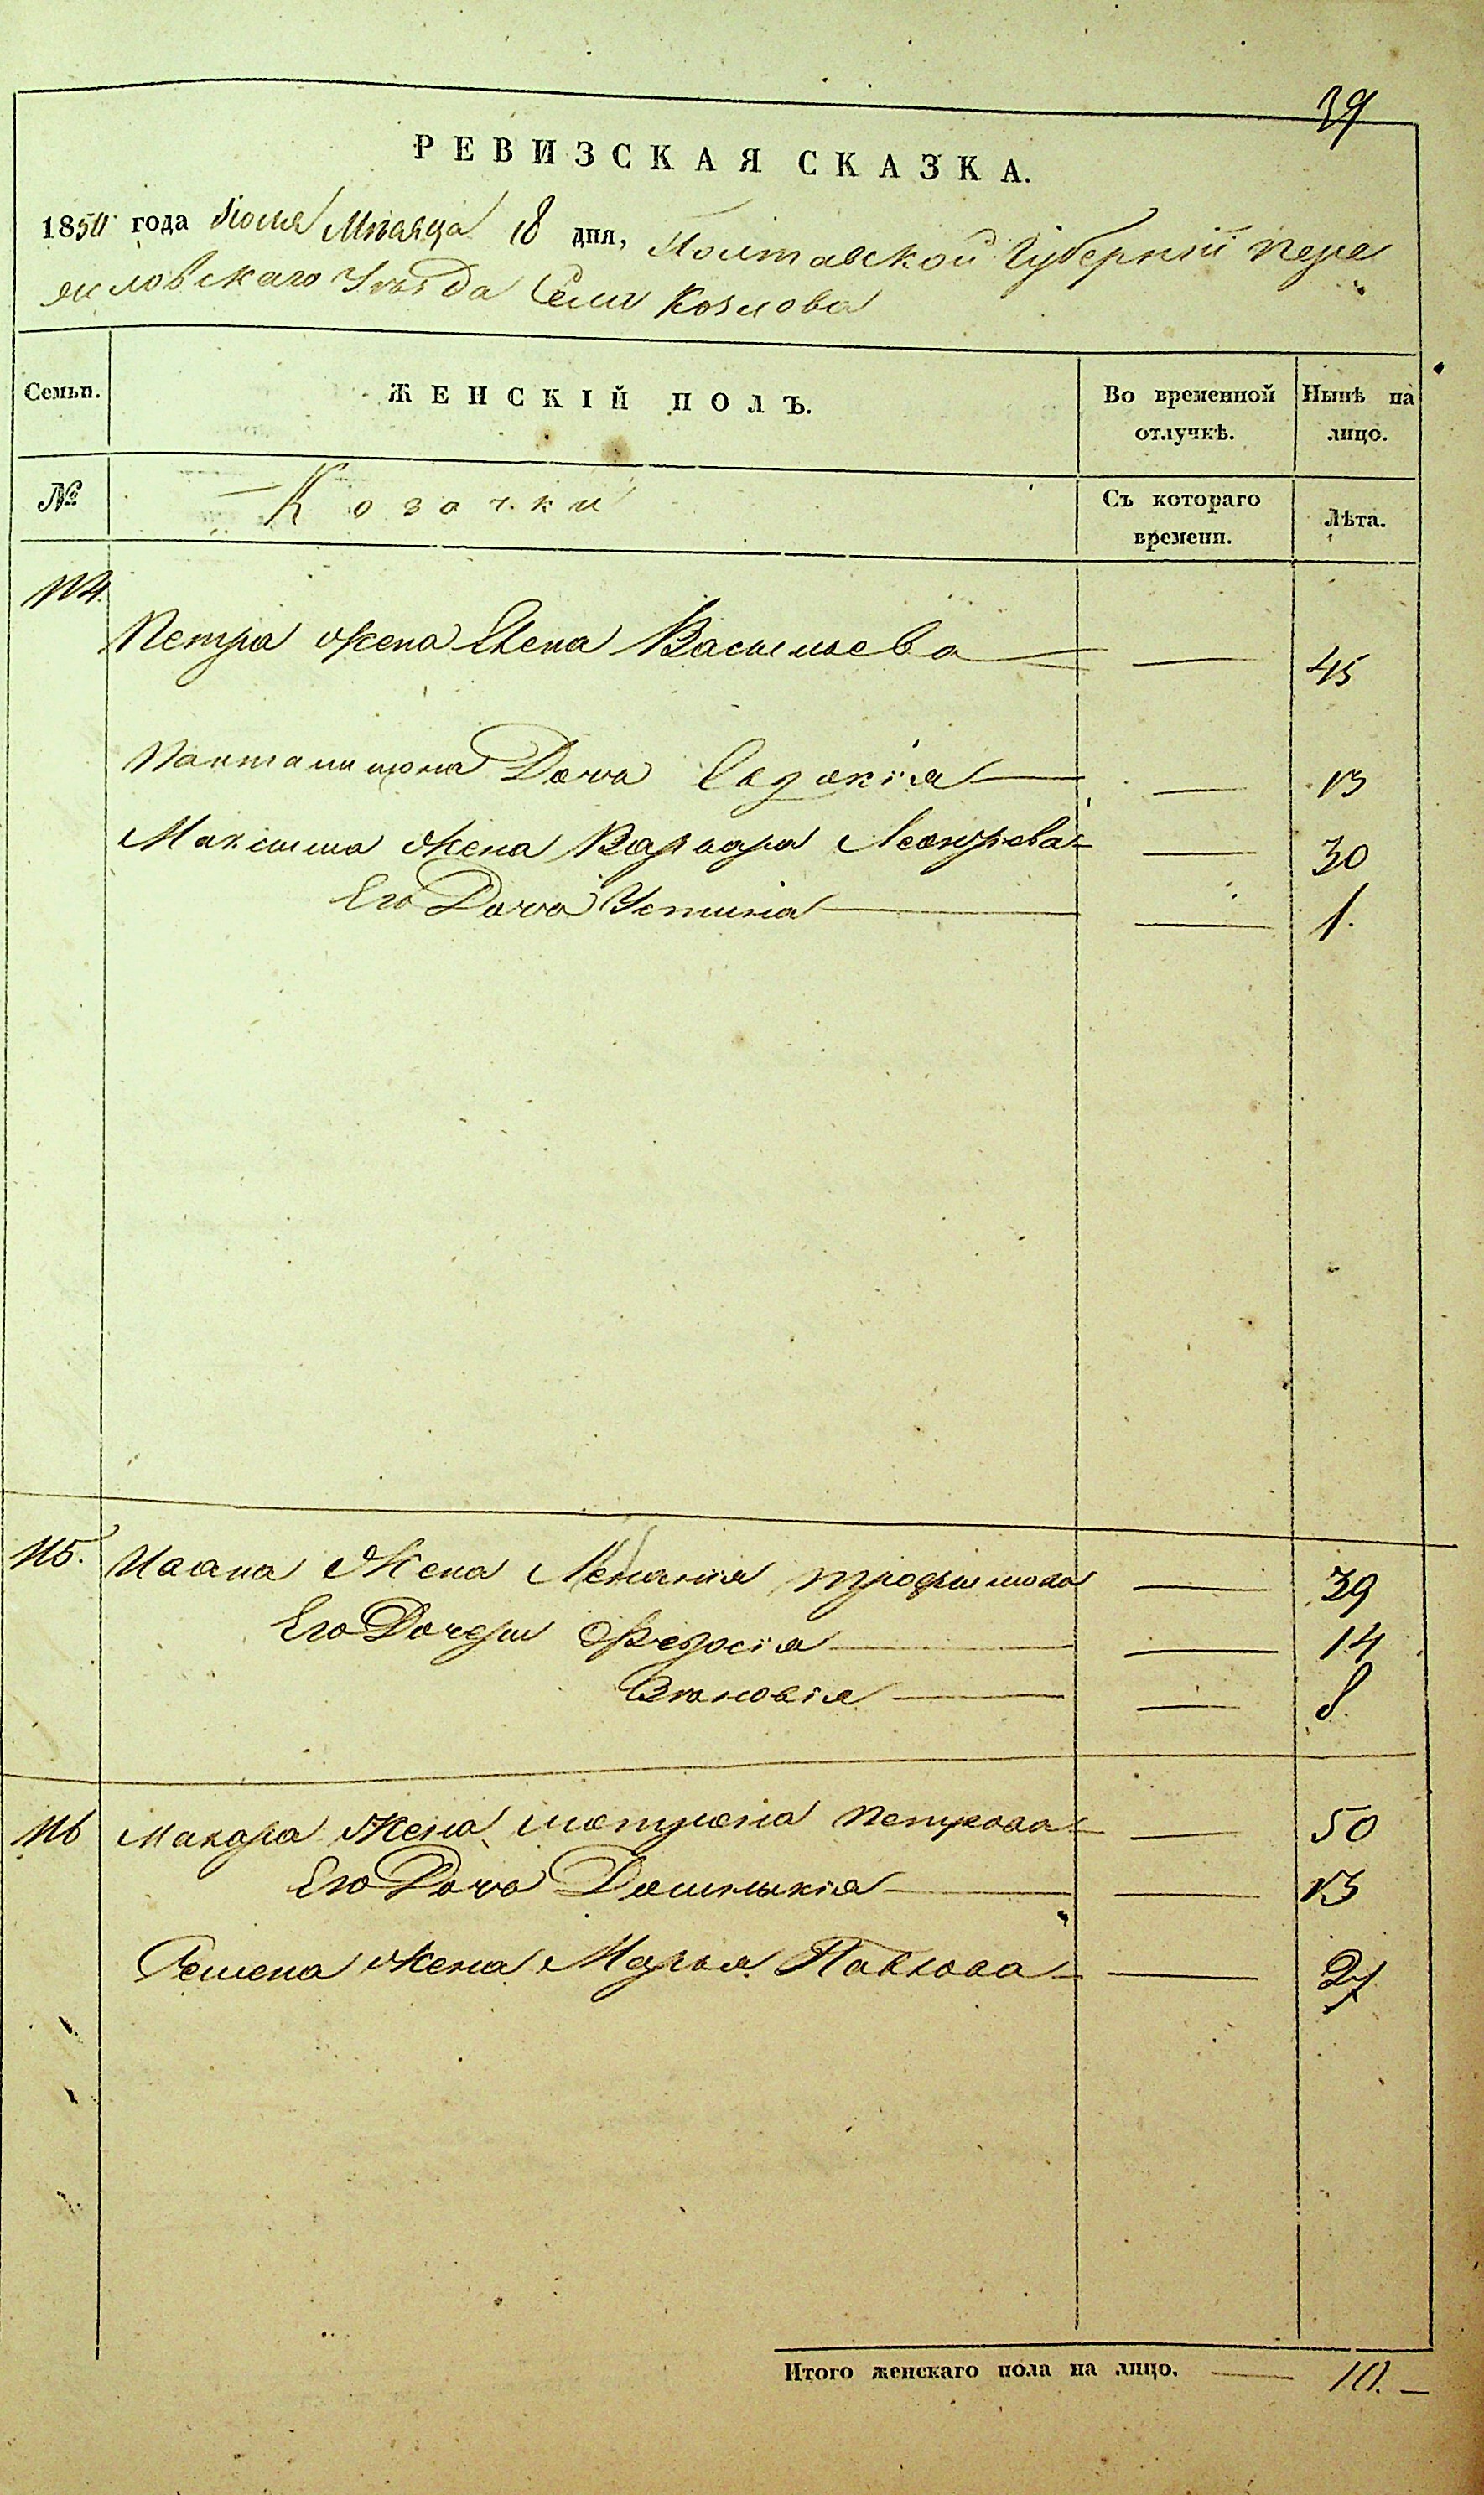 39
РЕВИЗСКАЯ СКАЗКА.
1850 года Июля Мѣсяца 18 дня, Полтавской Губерніи Пере
ясловскаго Уѣзда Села Козлова
Семьи. ЖЕНСКІЙ ПОЛЪ. Во временной отлучкѣ. Нынѣ на лицо.
№ Козачки Съ котораго времени. Лѣта.
114.
Петра жена Елена Васильева — — 45
Панталимона Дочь Евдокія — — 13
Максима жена Варвара Леонтьева — — 30
Его Дочь Устинія — — 1.
115. Ивана Жена Меланія Трофимова — 39
Его Дочери Феодосія — — 14
— — 8.
116 Макара Жена Мотрона Петрова — — 50
Его Дочь Домникія — — 13
Семена жена Марья Павлова — — 27
Итого женскаго пола на лицо. — 10. —